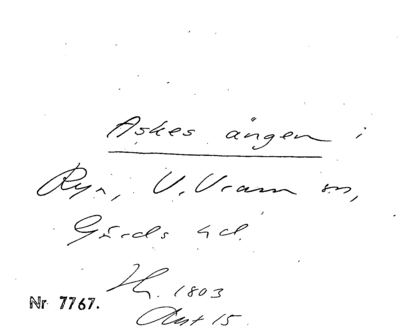 Askes ängen i
Ryn, V. Vram sn,
Gärds hd.
1803
Nr 7767.
15